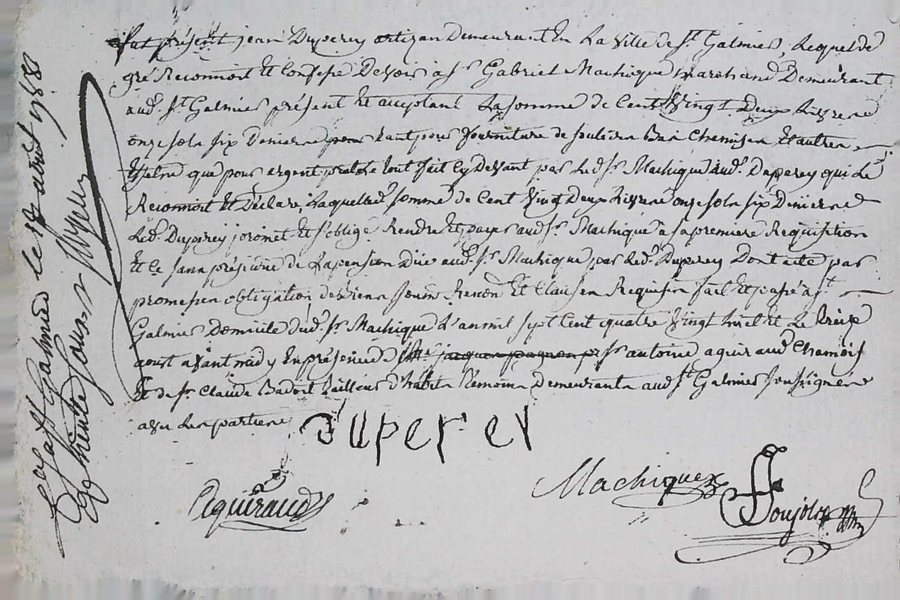 fut présent jean Duperey artizan Demeurant En La ville de St. Galmier, Lequel de
gré Reconnoit Et Confesse Devoir à Sr. Gabriel Machique Marchand Demeurant
aud. St. Galmier présent Et acceptant La somme de Cent Vingt Deux Livres
onze sols six Deniers pour fourniture de souliers Bas Chemises Et autres
que pour argent preté le tout fait Cy Devant par Led. Sr. Machique aud. Duperey qui Le
Reconnoit Et Déclare, Laquelle somme de Cent Vingt Deux Livres onze sols six Deniers
Led. Duperey promet Et s'oblige Rendre Et payer aud. Sr. Machique à sa premiere Requisition
Et Ce sans préjudice de La pension Düe aud. Sr. Machique par Led. Duperey Dont acte par
promesses obligation de biens Renon. Et Clauses Requises fait Et passé a St.
Galmier Domicile dud. Sr. Machique L'an mil sept Cent quatre Vingt huit Et Le treize
aoust avant midy En présence de Sr. antoine aguiraud
Et de Sr. Claude Badoit tailleur d'habits Temoins Demeurants aud. St. Galmier soussignés
avec Les parties
Duperey
Machique
aguiraud
Ponjols
St. Galmier le août 1788
trente sous